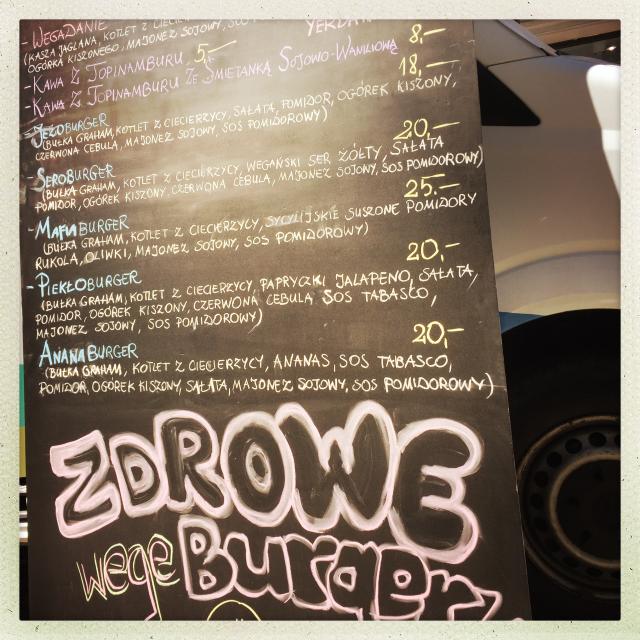 - WEGADANIE YERBA
(KASZA JAGLANA, KOTLET Z CIECIERZYCY,
OGÓRKA KISZONEGO, MAJONEZ SOJOWY, SOS
- KAWA Z TOPINAMBURU 5,- 8,-
- KAWA Z TOPINAMBURU ZE ŚMIETANKĄ SOJOWO-WANILIOWĄ
18,-
JEŻOBURGER
(BUŁKA GRAHAM, KOTLET Z CIECIERZYCY, SAŁATA, POMIDOR, OGÓREK KISZONY,
CZERWONA CEBULA, MAJONEZ SOJOWY, SOS POMIDOROWY)
20,-
SEROBURGER
(BUŁKA GRAHAM, KOTLET Z CIECIERZYCY, WEGAŃSKI SER ŻÓŁTY, SAŁATA
POMIDOR, OGÓREK KISZONY CZERWONA CEBULA, MAJONEZ SOJOWY, SOS POMIDOROWY)
25.-
- MAFIABURGER
(BUŁKA GRAHAM, KOTLET Z CIECIERZYCY, SYCYLIJSKIE SUSZONE POMIDORY
RUKOLA, OLIWKI, MAJONEZ SOJOWY, SOS POMIDOROWY)
20,-
- PIEKŁOBURGER
(BUŁKA GRAHAM, KOTLET Z CIECIERZYCY, PAPRYCZKI JALAPENO, SAŁATA,
POMIDOR, OGÓREK KISZONY, CZERWONA CEBULA SOS TABASCO,
MAJONEZ SOJOWY, SOS POMIDOROWY)
20,-
ANANABURGER
(BUŁKA GRAHAM, KOTLET Z CIECIERZYCY, ANANAS, SOS TABASCO,
POMIDOR, OGÓREK KISZONY, SAŁATA, MAJONEZ SOJOWY, SOS POMIDOROWY)
ZDROWE
wege Burgery